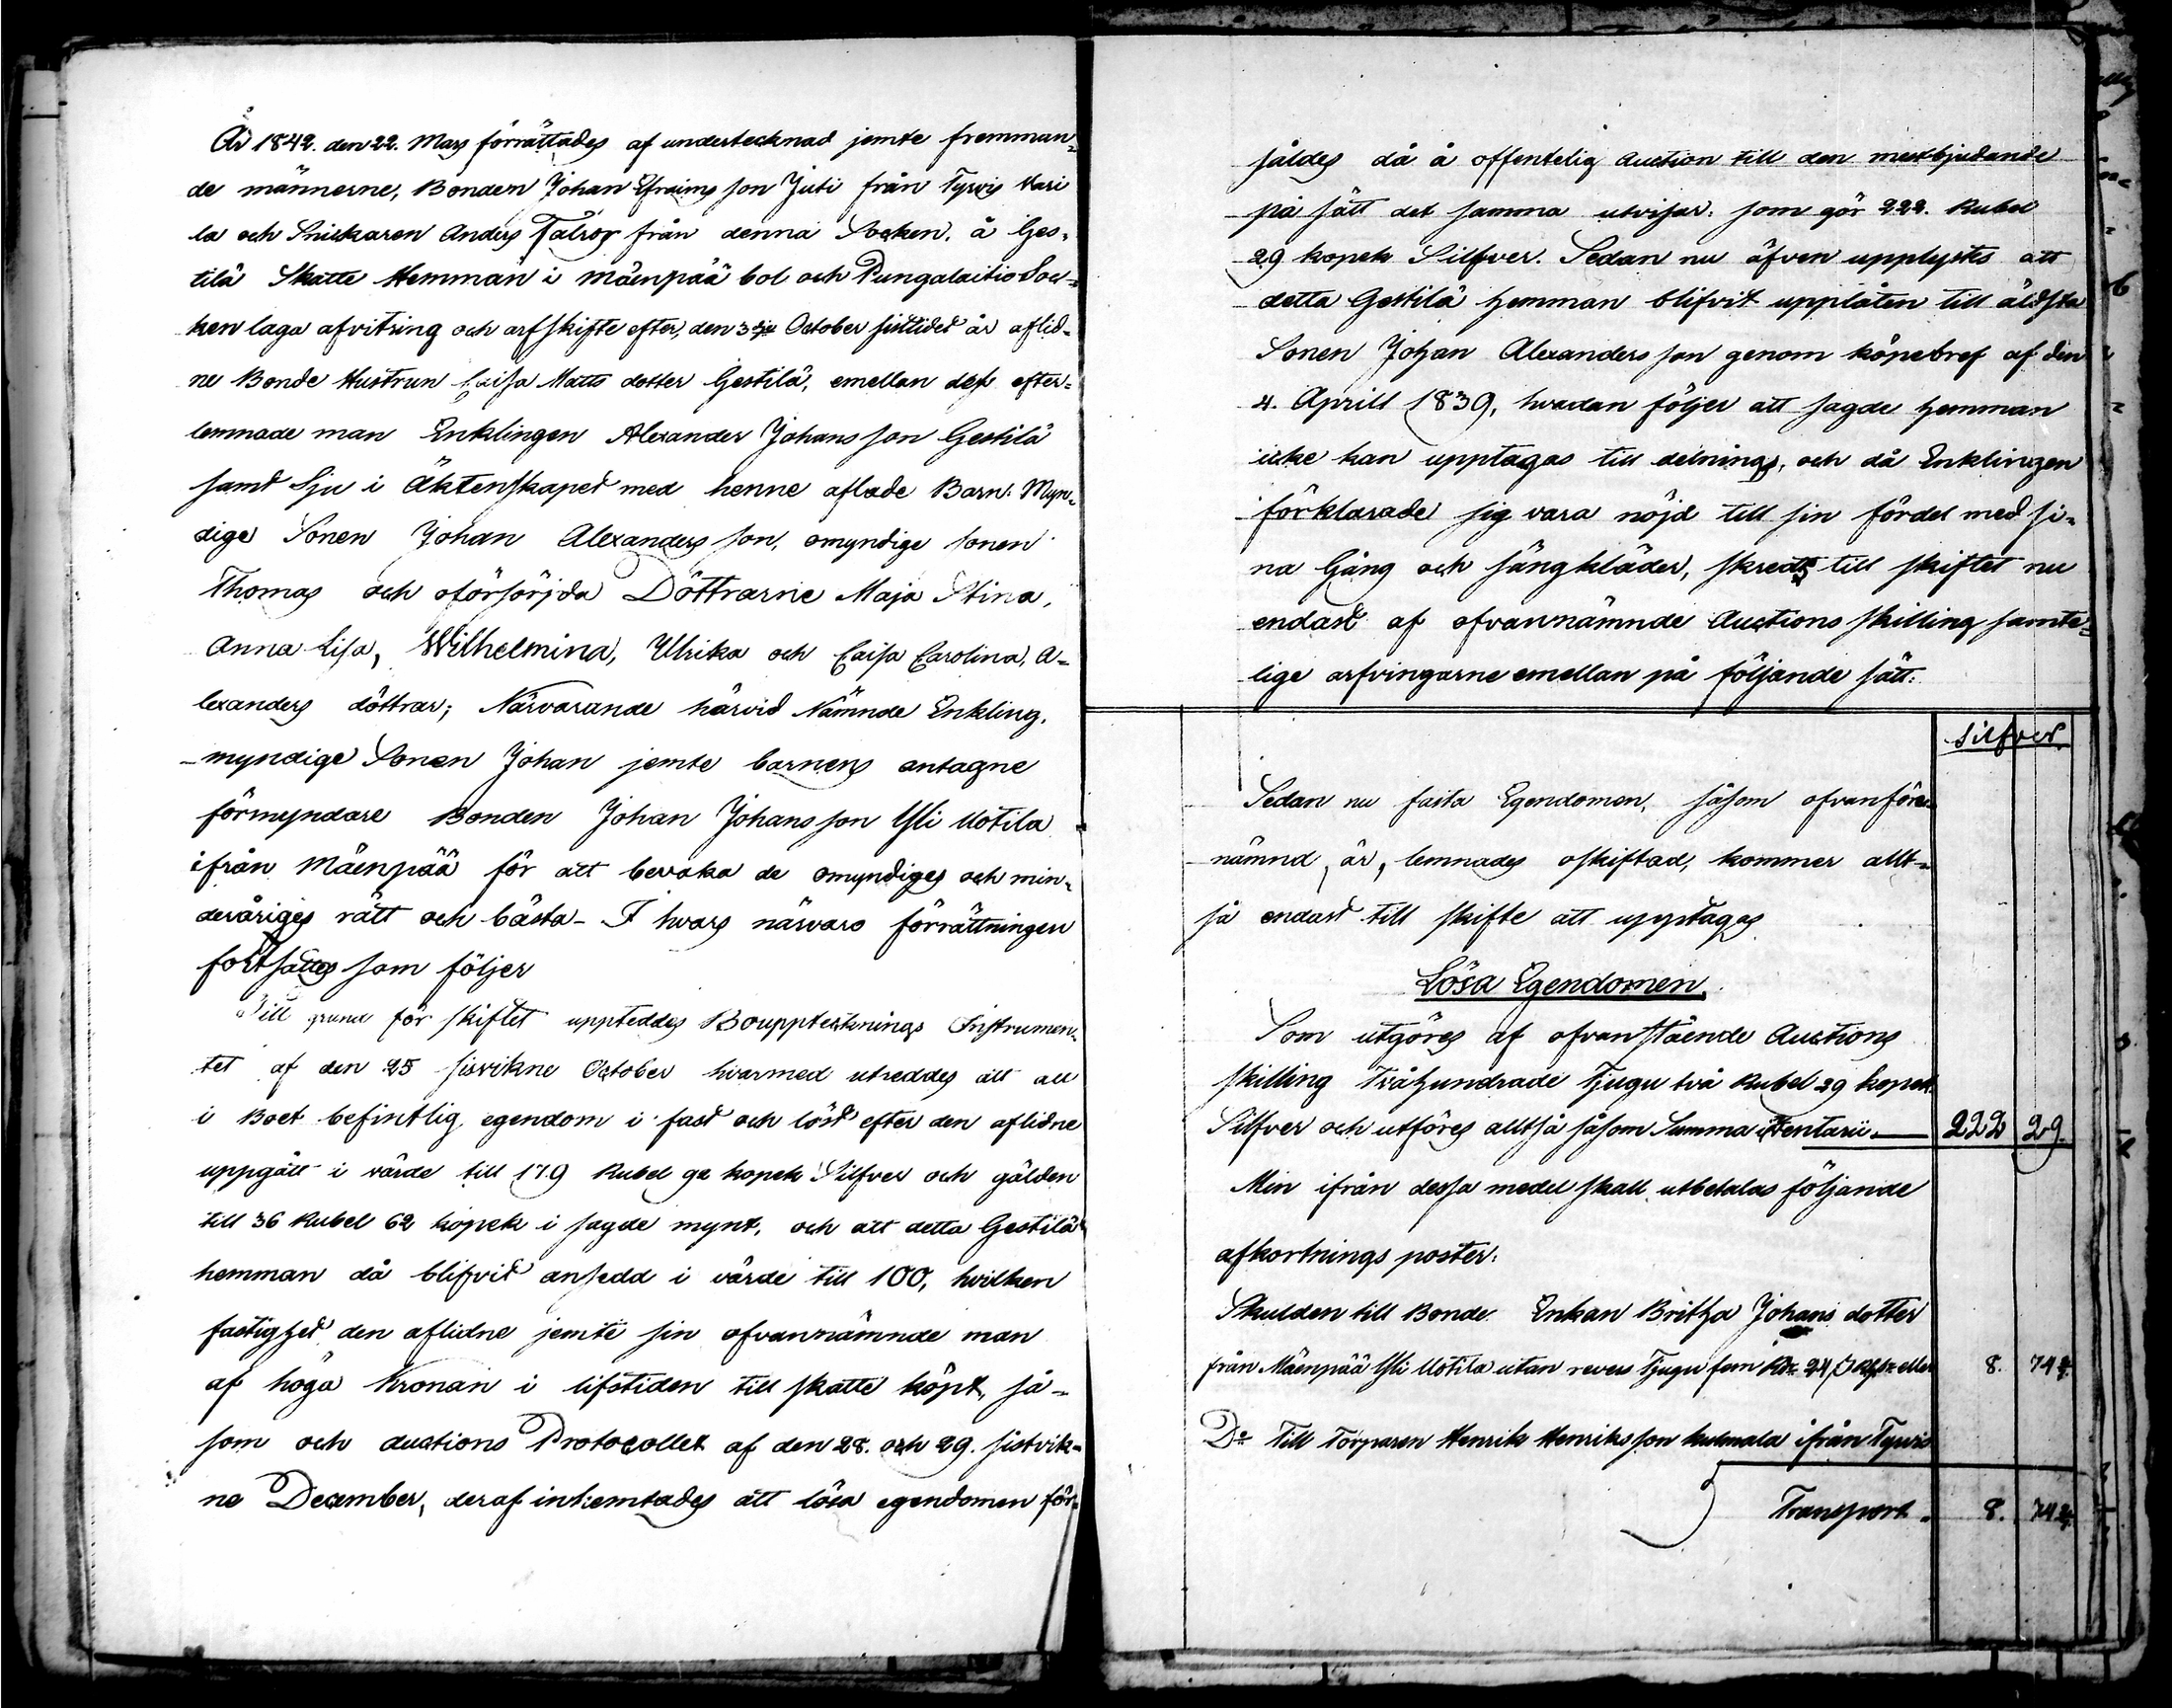 År 1842. den 22. Mars förrättades af undertecknad jemte fremman-
de männerne, Bonden Johan Efraims son Juti från Tyrvis Vari
la och Snickaren Anders Talror från denna Socken, å Ges-
tilä Skatte Hemman i Mäenpää bol och Pungalaitio Soc-
ken laga afvitring och arfskifte efter, den 3dje October sistlidet år aflid-
ne Bonde Hustrun Caisa Matts dotter Gestilä, emellan dess efter-
lemnade man Enklingen Alexander Johans son Gestilä
samt Sju i Äktenskapet med henne aflade Barn: Myn-
dige Sonen Johan Alexanders son, omyndige sonen
Thomas och oförsörjda Döttrarne Maja Stina,
Anna Lisa, Wilhelmina, Ulrika och Caisa Carolina, A-
lexanders döttrar; Närvarande härvid Nämnde Enkling,
myndige Sonen Johan jemte barnens antagne
förmyndare Bonden Johan Johans son Yli Uotila
ifrån Mäenpää för att bevaka de omyndiges och min-
deråriges rätt och bästa - I hvars närvaro förrättningen
fortsattes som följer
Till grund för skiftet uppteddes Bouppteknings Instrumen-
tet af den 25 sisvikne October hvarmed utreddes att all
i Boet befintlig egendom i fast och löst efter den aflidne
uppgått i värde till 179 Rubel 92 kopek Silfver och gälden
till 36 Rubel 62 kopek i sagde mynt, och att detta Gestilä
hemman då blifvit ansedd i värde till 100, hvilken
fastighet den aflidne jemte sin ofvannämnde man
af höga Kronan i lifstiden till skatte köpt, så-
som och auctions Protocollet af den 28. och 29. sistvik-
ne December, deraf inhemtades att lösa egendomen för-
såldes då å offentelig Auction till den mestbjudande
på sätt det samma utvisar: som gör 222. Rubel
29 kopek Silfver. Sedan nu äfven upplysts att
detta Gestilä hemman blifvit upplåten till äldsta
Sonen Johan Alexanders son genom köpebref af den
4. Aprill 1839, hvadan följer att sagde hemman
icke kan upptagas till delnings, och då Enklingen
förklarade sig vara nöjd till sin fördel med si-
na Gång och sängkläder, skreds till skiftet nu
endast af ofvannämnde Auctions skilling samte-
lige arfvingarne emellan på följande sätt:
Silfver
Sedan nu fasta Egendomen, såsom ofvanföre
nämnd är, lemnades oskiftad, kommer allt-
så endast till skifte att upptagas
Lösa Egendomen.
Som utgöres af ofvanstående Auctions
skilling Tvåhundrade Tjugu två Rubel 29 kopek
Silfver och utföres alltså såsom Summa inventarii. 222 29.
Men ifrån dessa medel skall utbetalas följande
afkortnings poster:
Skulden till Bonde Enkan Britha Johans dotter
från Mäenpää Yli Uotila utan revers Tjugu fem eller 8. 74
Do Till Torparen Henrik Henriks son Kulmala ifrån Tyrvis
Transport. 8. 74